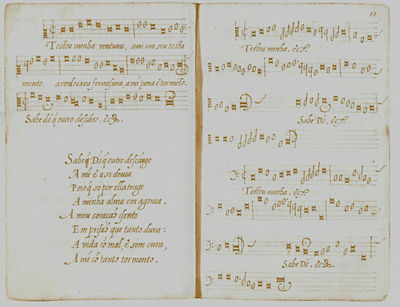 Testou minha ventura, ami em seu testa
mento. averdeixou fermosura, ami pena & tormeto.
Sabe di q̃ outro descãso. &c̃.
Sabeq̃ Di q̃ outro descãso
A mi é a si divia
Pois q̃ so por ella trago
A minha alma em agonia.
A meu coração isento
Em prisão que tanto dura:
A vida có mal, & sem cura,
A mi có tanto tormento.
Testou minha. &c̃.
Sabe Di. &c̃.
Testou minha. &c̃.
Sabe Di. &c̃.